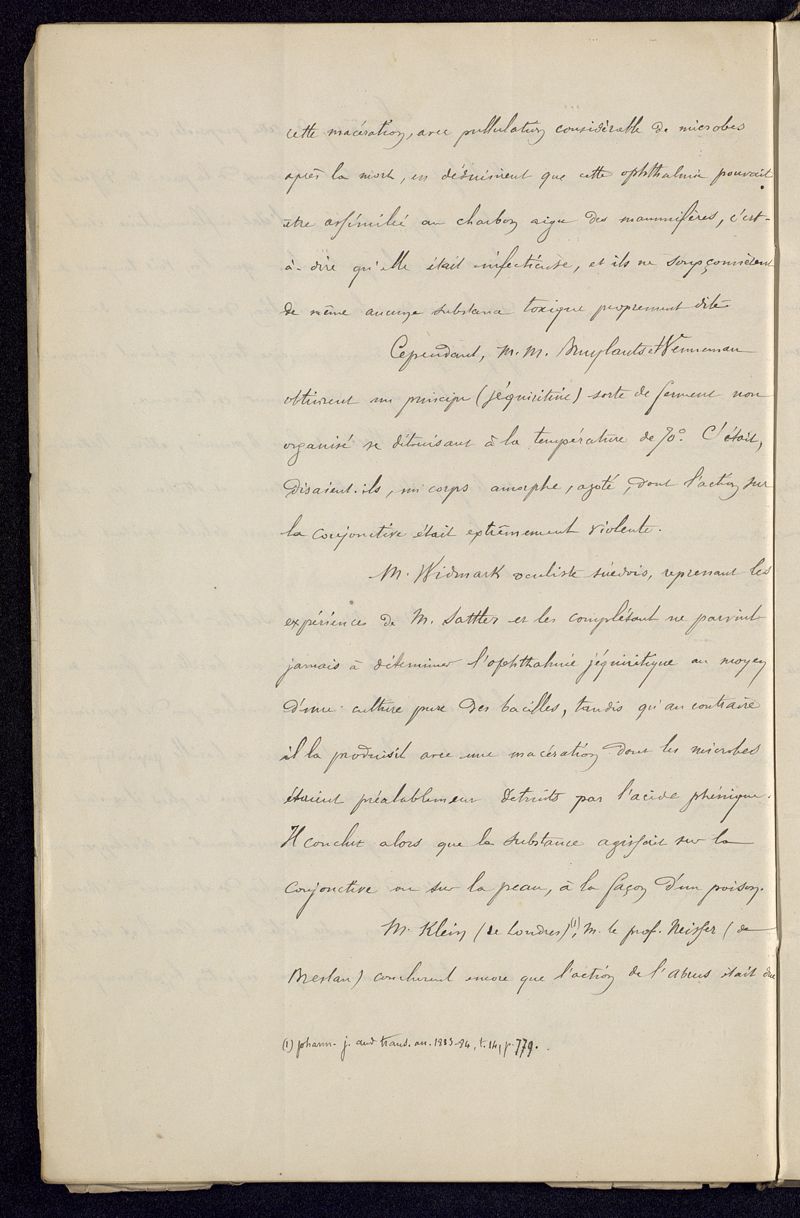 cette macération, avec pullulation considérable de microbes
après la mort, en déduisirent que cette ophthalmie pouvait
être assimilée au charbon aigu des mammifères, c'est-
à-dire qu'elle était infectieuse, et ils ne soupçonnèrent
de même aucune substance toxique proprement dite
Cependant, M.M. Bruylants et Venneman
obtinrent un principe (jéquiritine) sorte de ferment non
organisé se détruisant à la température de 70°. C'était,
disaient-ils, un corps amorphe, azoté, dont l'action sur
la conjonctive était extrêmement violente.
M. Widmark oculiste suédois, reprenant les
expériences de M. Sattler et les complétant ne parvint
jamais à déterminer l'ophthalmie jéquiritique au moyen
d'une culture pure des bacilles, tandis qu'au contraire
il la produisit avec une macération dont les microbes
étaient préalablement détruits par l'acide phénique.
Il conclut alors que la substance agissait sur la
conjonctive ou sur la peau, à la façon d'un poison.
M. Klein (de Londres)(1), M. le prof. Neisser (de
Breslau) conclurent encore que l'action de l'Abrus était due
(1) pharm. j. and trans. an. 1883-84, t. 14, p. 779.